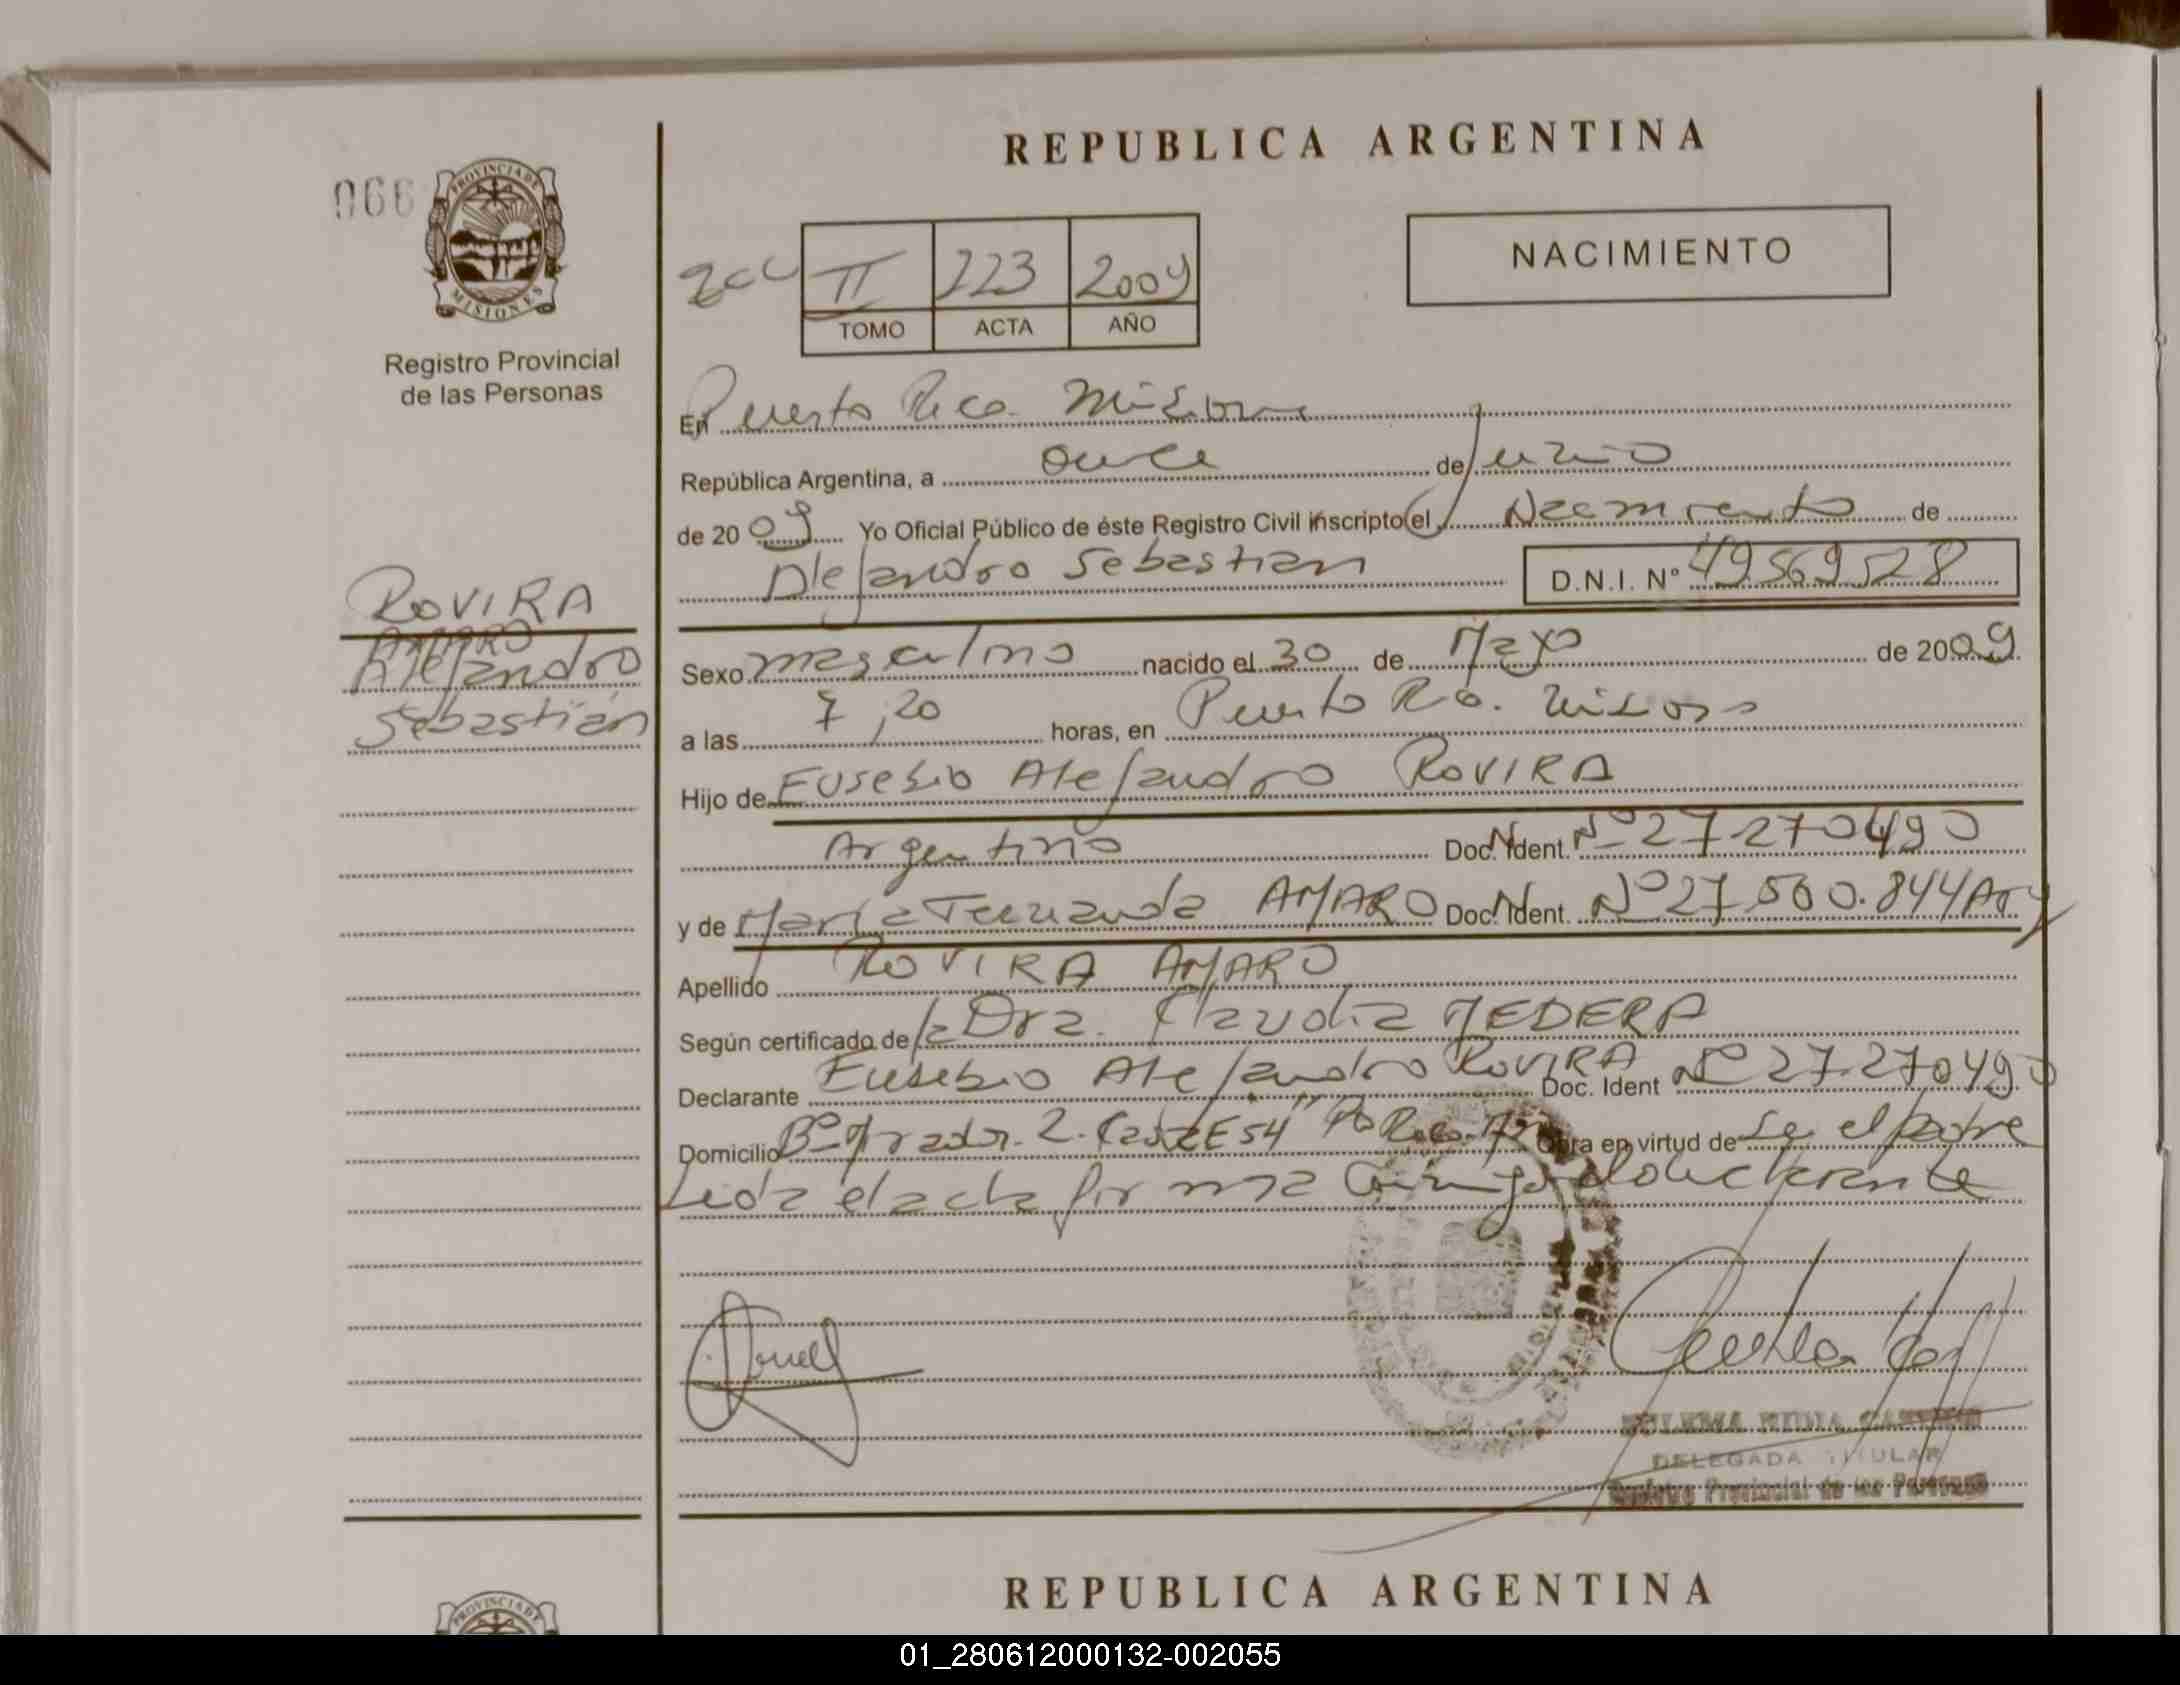 REPUBLICA ARGENTINA
066
PROVINCIA DE
MISIONES
Registro Provincial
de las Personas
II 223 2009
TOMO ACTA AÑO
NACIMIENTO
En Puerto Rico. Misiones
República Argentina, a once de Junio
de 2009 Yo Oficial Público de éste Registro Civil inscripto el Nacimiento de
Alejandro Sebastian D.N.I. Nº 49569528
ROVIRA
AMARO
Alejandro
Sebastián
Sexo masculino nacido el 30 de Mayo de 2009
a las 7,20 horas, en Puerto Rico. Misiones
Hijo de Eusebio Alejandro ROVIRA
Argentino Doc. Ident. Nº 27270490
y de María Fernanda AMARO Doc. Ident. Nº 27.560.844 Arg
Apellido ROVIRA AMARO
Según certificado de la Dra. Claudia MEDERA
Declarante Eusebio Alejandro ROVIRA Doc. Ident Nº 27.270490
Domicilio Bº 2. Casa E54 Pto Rico. Obra en virtud de Ser el padre
Leida el acta firma Conmigo el declarante
DELEGADA TITULAR
Registro Provincial de las Personas
REPUBLICA ARGENTINA
PROVINCIA DE
01_280612000132-002055